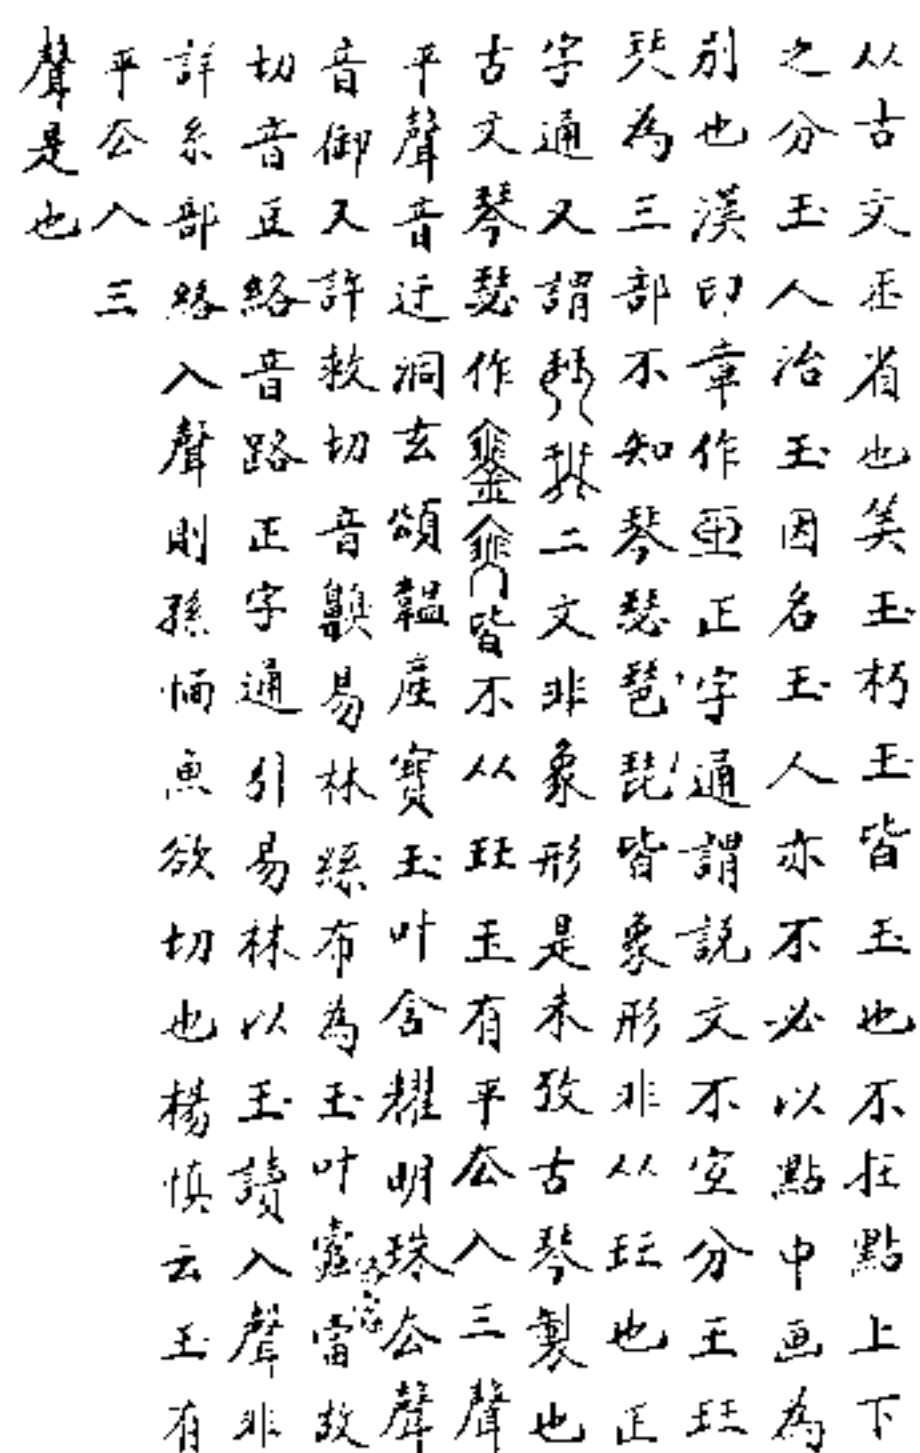 从古文丕省也美玉朽王皆玉也不在點上下
之分玉人治玉因名玉人亦不必以點中画為
別也漢印章作𠀑正字通謂說文不宜分王玨
珡為三部不知琴瑟琶琵皆象形非从玨也正
字通又謂二文非象形是未攷古琴製也
古文琴瑟作皆不从玨玉有平厺入三聲
平聲音迂洞玄頌韞産寶玉叶含耀明珠厺聲
音御又許救切音齅易林絲布為玉叶當故
切音豆絡音路正字通引易林以玉讀入聲非
詳糸部絡入聲則孫愐魚欲切也楊慎云玉有
平厺入三
聲是也